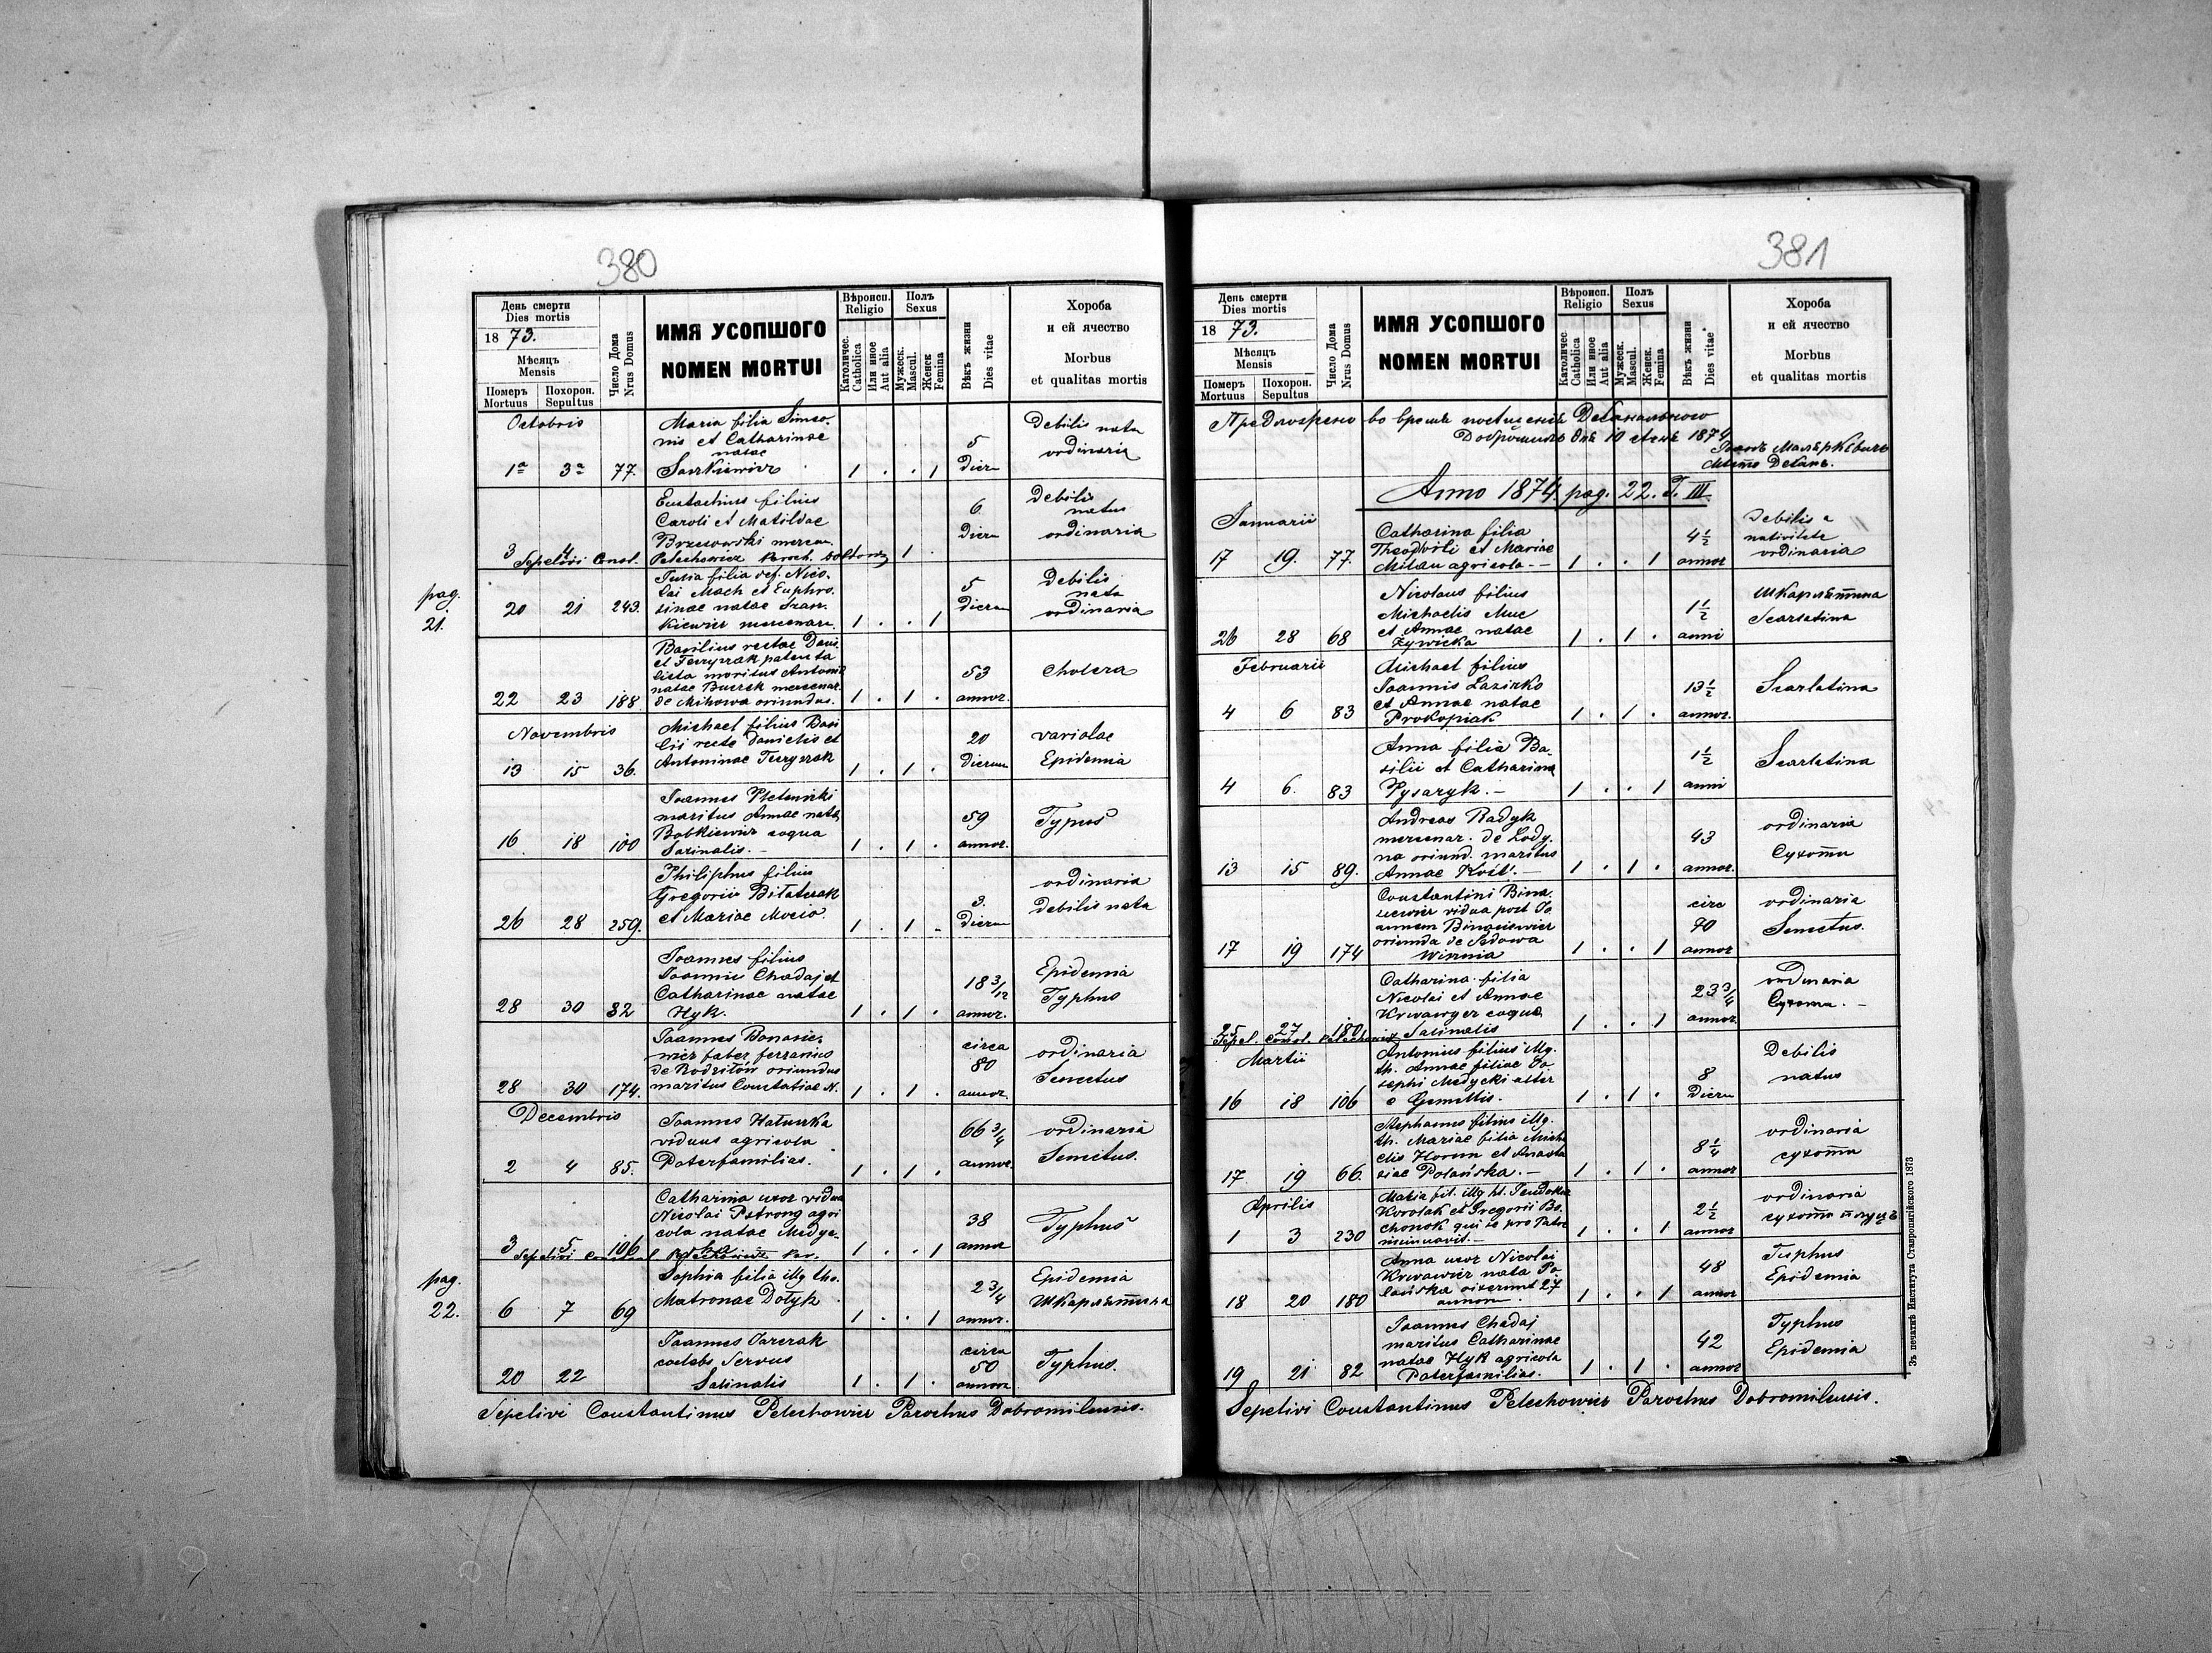 380
День смерти
Dies mortis
1873.
Мѣсяць
Mensis
Померъ
Mortuus
Похорон.
Sepultus
Число Дома
Nrus Domus
ИМЯ УСОПШОГО
NOMEN MORTUI
Вѣроисп.
Religio
Католичес.
Catholica
Или иное
Aut alia
Полъ
Sexus
Мужеск.
Mascul.
Женск
Femina
Вѣкъ жизни
Dies vitae
Хороба
и ей ячество
Morbus
et qualitas mortis
Octobris
Maria filia Simeo-
nis et Catharinae
natae
1ª 3ª 77. 1 . . 1
5
Dieru
Debilis nata
ordinaria
Eustachius filius
Caroli et Matildae
Brzezowski mercen.
3 4 1 .
6
Dieru
Debilis
natus
ordinaria
Sepelivi Const. Petechowicz Paroch.
pag.
21.
Julia filia def. Nico-
lai Mach et Euphro-
sinae natae
kiewicz mercenar.
20 21 243. 1 . . 1
5
Dierum
Debilis
nata
ordinaria
Basilius rectae Dani.
et
maritus Antonin
natae mercenar.
de Mihowa oriundus.
22 23 188. 1 . 1 .
53
annor.
Cholera
Novembris
Michael filius Basi
lii recte Danielis et
Antoninae
13 15 36. 1 . 1 .
20
Dierum
variolae
Epidemia
Joannes
maritus Annae nata
Bobkiewicz coqua
Salinalis. -
16 18 100 1 . 1 .
59
annor.
Typus
Philiphus filius
Gregorii
et Mariae
26 28 259. 1 . 1 .
3.
Dierum
ordinaria
debilis nata
Joannes filius
Joannis Chadaj et
Catharinae natae
Hyk.
28 30 82 1 . 1 .
18 3/12
annor.
Epidemia
Typhus
Joannes Bonasie-
wicz faber ferrarius
de oriundus
maritus Constatiae N.
28 30 174. 1 . 1 .
circa
80
annor
ordinaria
Senectus
Decembris
Joannes Hatuszka
viduus agricola
Paterfamilias.
2 4 85. 1 . 1 .
66 3/4
annor.
ordinaria
Senectus.
Catharina uxor vidua
Nicolai Pstrong agri
cola natae Medyc-
3 5 106 1 . . 1
38
annor
Typhus
Sepelivi Constant. Petechowicz Par.
pag.
22.
Sophia filia illg tho.
Matronae Dotyk
6 7 69 1 . . 1
2 3/4
annor.
Epidemia
шкарлятина
Joannes
coelebs Servus
Salinalis
20 22 1 . 1 .
circa
50
annor
Typhus.
Sepelivi Constantinus Petechowicz Parochus Dobromilensis.
381
День смерти
Dies mortis
1873.
Мѣсяць
Mensis
Померъ
Mortuus
Похорон.
Sepultus
Число Дома
Nrus Domus
ИМЯ УСОПШОГО
NOMEN MORTUI
Вѣроисп.
Religio
Католичес
Catholica
Или иное
Aut alia
Полъ
Sexus
Мужеск.
Mascul.
Женск.
Femina
Вѣкъ жизни
Dies vitae
Хороба
и ей ячество
Morbus
et qualitas mortis
во время посѣщенія Деканального
Добромиль дня 10 1874
Деканъ.
Anno 1874. pag. 22. T. III.
Januarii
Catharina filia
Theodori et Mariae
Milan agricola. -
17 19. 77. 1 . . 1
4 1/2
annor
Debilis a
nativitate
ordinaria
Nicolaus filius
Michaelis Muc
et Annae natae
Żywicka
26 28 68 1 . 1 .
1 1/2
anni
шкарлятина
Scarlatina
Februarii
Michael filius
Joannis Lazirko
et Annae natae
Prokopiak
4 6 83 1 . 1 .
13 1/2
annor.
Scarlatina
Anna filia Ba-
silii et Catharina
Pysaryk. -
4 6. 83 1 . . 1
1 1/2
anni
Scarlatina
Andreas Radyk
mercenar. de Lody-
na oriund. maritus
Annae
13 15 89. 1 . 1 .
43
annor.
ordinaria
Сухоты
Constantini Bina-
vidua post Jo
annem
oriunda de Sadowa
Wisznia
17 19 174 1 . . 1
circ
70
annor
ordinaria
Senectus.
Catharina filia
Nicolai et Annae
coqua
Salinalis
25 27 180 1 . . 1
23 3/4
annor.
ordinaria
Сухоты. -
Sepel. Const. Petechowicz
Martii
Antonius filius illg.
th. Annae filiae Jo
sephi Medycki alter
e Gemellis.
16 18 106 1 . 1 .
8
Dieru
Debilis
natus
Stephanus filius illg.
th. Mariae filia Micha
elis et Anasta
siae Polańska. -
17 19 66. 1 . 1 .
8 1/4
annor
ordinaria
сухоты
Aprilis
Maria fil. illg th. Eudokia
Korolak et Gregorii Bo-
chonok qui se pro Patre
insinuavit. -
1 3 230 1 . . 1
2 1/2
annor
ordinaria
сухоты
Anna uxor Nicolai
nata Po
lańska vixerunt 27
annorum.
18 20 180 1 . . 1
48
annor
Tuphus
Epidemia
Joannes Chadaj
maritus Catharinae
natae Hyk agricola
Paterfamilias.
19 21 82 1 . 1 .
42
annor
Typhus
Epidemia
Sepelivi Constantinus Petechowicz Parochus Dobromilensis.
Зъ печатнѣ Института Ставропигійского 1873